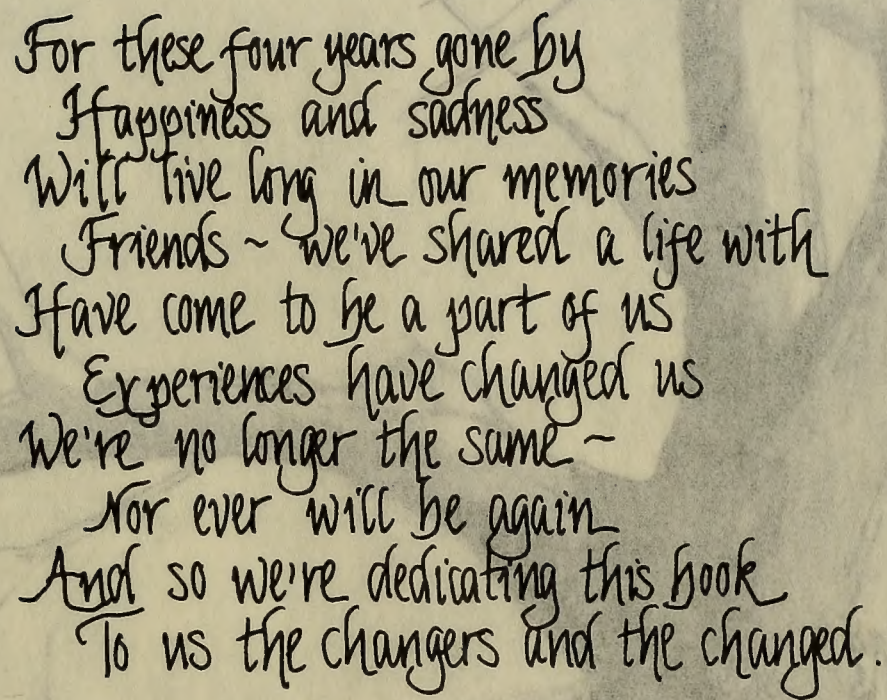 For these four years gone by
Happiness and sadness
Will live long in our memories
Friends ~ we've shared a life with
Have come to be a part of us
Experiences have changed us
We're no longer the same ~
Nor ever will be again
And so we're dedicating this book
To us the changers and the changed.